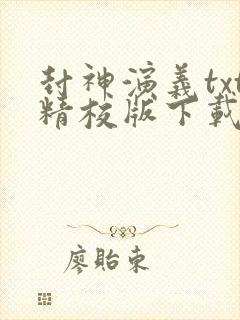 封神演義txt
精校版下載
廖貽東